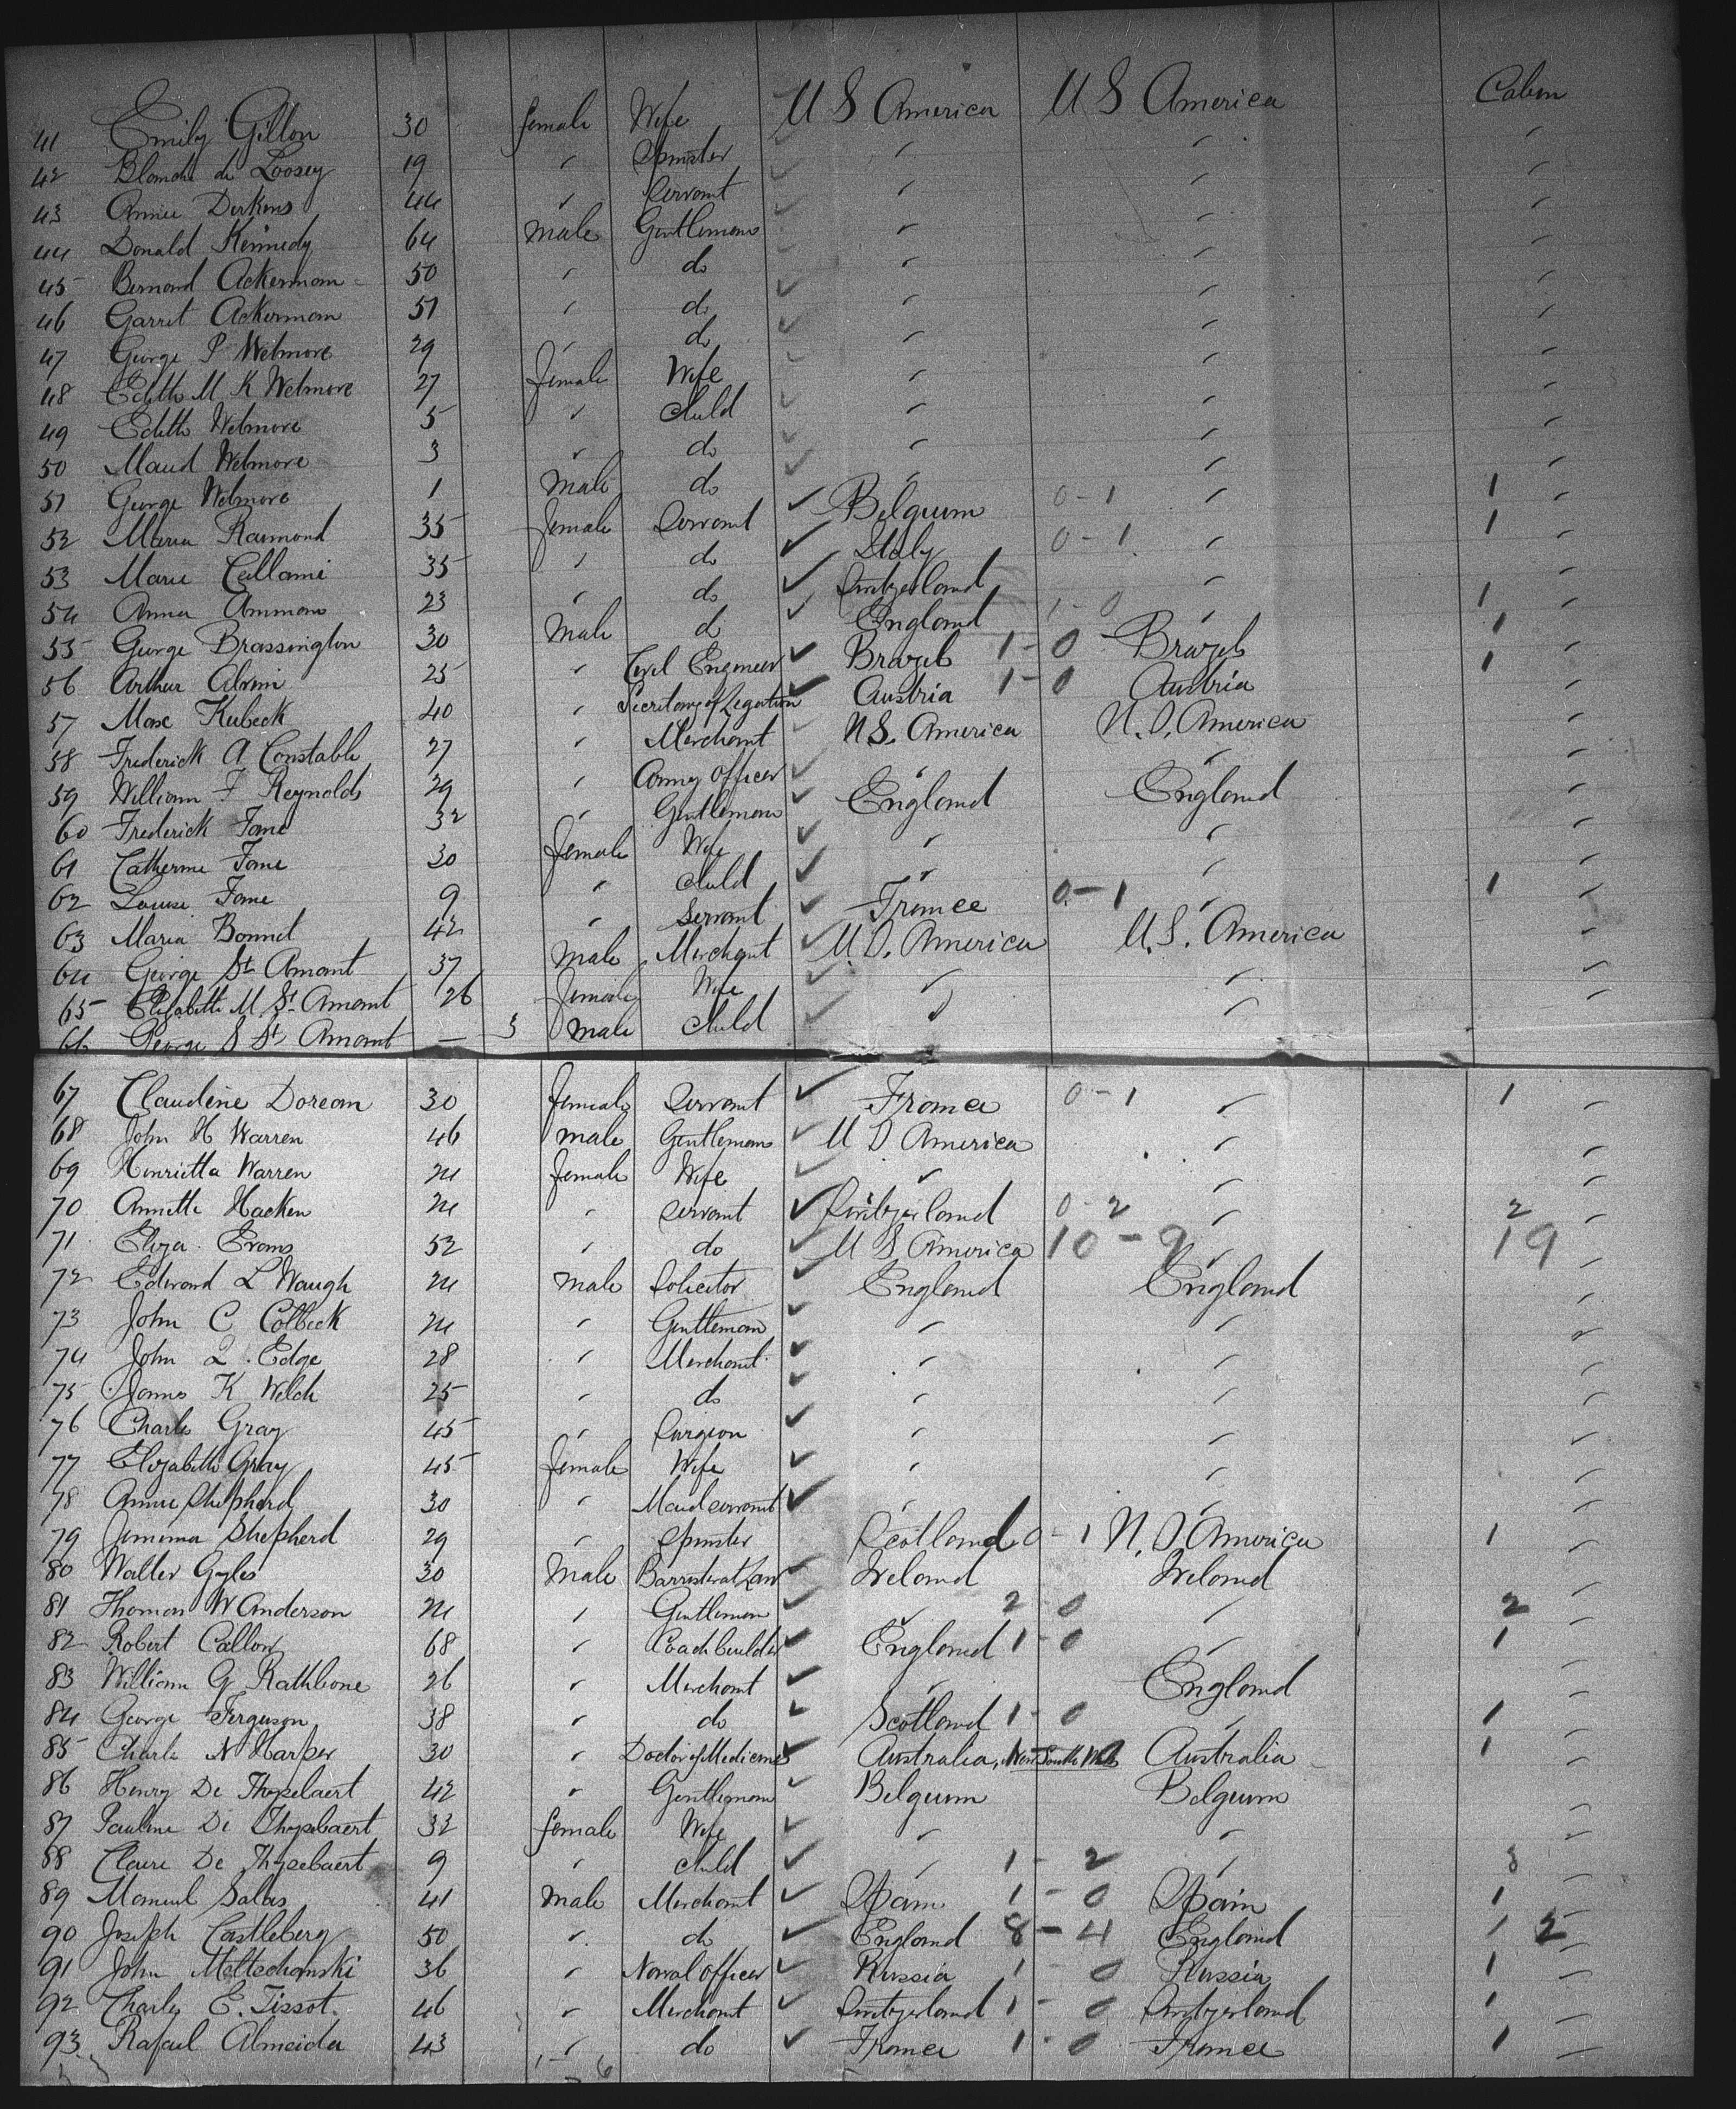 41 Emily Gillon 30 female Wife U S America U S America Cabin
42 Blanche de Loosey 19 " Spinster " " "
43 Annie Derkens 44 " Servant " " "
44 Donald Kennedy 64 Male Gentleman " " "
45 Bernard Ackerman 50 " do " " "
46 Garret Ackerman 51 " do " " "
47 George P Wetmore 29 " do " " "
48 Edith M K Wetmore 27 female Wife " " "
49 Edith Wetmore 5 " Child " " "
50 Maud Wetmore 3 " do " " "
51 George Wetmore 1 Male do " " "
52 Maria Raimond 35 female Servant Belgium 0-1 " 1 "
53 Marie Cellami 35 " do Italy 0-1 " 1 "
54 Anna Ammann 23 " do Switzerland " "
55 George Brassington 30 Male do England 1-0 " 1 "
56 Arthur Alvim 25 " Civil Engineer Brazil 1-0 Brazil 1 "
57 Max Kubeck 40 " Secretary of Legation Austria 1-0 Austria 1 "
58 Frederick A Constable 27 " Merchant U S. America U. S. America "
59 William F Reynolds 29 " Army Officer " " "
60 Frederick Fane 32 " Gentleman England England "
61 Catherine Fane 30 female Wife " " "
62 Louise Fane 9 " Child " " "
63 Maria Bonnet 42 " Servant France 0-1 " 1 "
64 George St Amant 37 Male Merchant U. S. America U. S. America "
65 Elizabeth M. St Amant 26 female Wife " " "
66 George S St Amant — 3 Male Child " " "
67 Claudine Doreau 30 female Servant France 0-1 " 1 "
68 John H Warren 46 Male Gentleman U S America " "
69 Henrietta Warren 24 female Wife " " "
70 Annette Hacken 24 " Servant Switzerland 0-2 " 2 "
71 Eliza Evans 52 " do U S America 10-9 " 19 "
72 Edward L Waugh 24 Male Solicitor England England "
73 John C Colbeck 24 " Gentleman " " "
74 John L. Edge 28 " Merchant " " "
75 James K Welch 25 " do " " "
76 Charles Gray 45 " Surgeon " " "
77 Elizabeth Gray 45 female Wife " " "
78 Annie Shepherd 30 " Maid servant " " "
79 Jemima Shepherd 29 " Spinster Scotland 0-1 U. S. America 1 "
80 Walter Gyles 30 Male Barrister at Law Ireland Ireland "
81 Thomas W Anderson 24 " Gentleman " 2-0 " 2 "
82 Robert Callow 68 " Coach builder England 1-0 " 1 "
83 William G Rathbone 26 " Merchant " England "
84 George Ferguson 38 " do Scotland 1-0 " 1 "
85 Charles N Harper 30 " Doctor of Medicine Australia, New South Wales Australia 1 "
86 Henry De Thysebaert 42 " Gentleman Belgium Belgium
87 Pauline De Thysebaert 32 female Wife " " "
88 Claire De Thysebaert 9 " Child " 1-2 " 3 "
89 Manuel Salas 41 Male Merchant Spain 1-0 Spain 1 "
90 Joseph Castleberg 50 " do England 8-4 England 12 "
91 John Moltschanski 36 " Naval Officer Russia 1-0 Russia 1 "
92 Charles E. Tissot. 46 " Merchant Switzerland 1-0 Switzerland 1 "
93 Rafael Almeida 43 " do France 1-0 France 1 "